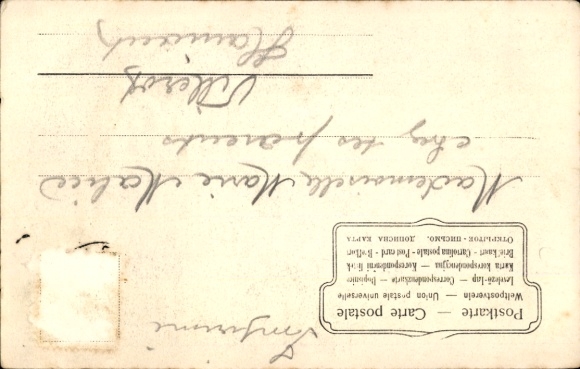 Postkarte — Carte postale
Weltpostverein — Union postale universelle
Levelező-Lap — Correspondenzkarte — Dopisnice
Karta korespondencyjna — Korespondenční lístek
Briefkaart - Cartolina postale - Post card - Brefkort
Открытое письмо. Дописна карта
Imprimé
Mademoiselle Marie Mahieu
chez ses parents
Villerot
Hainaut